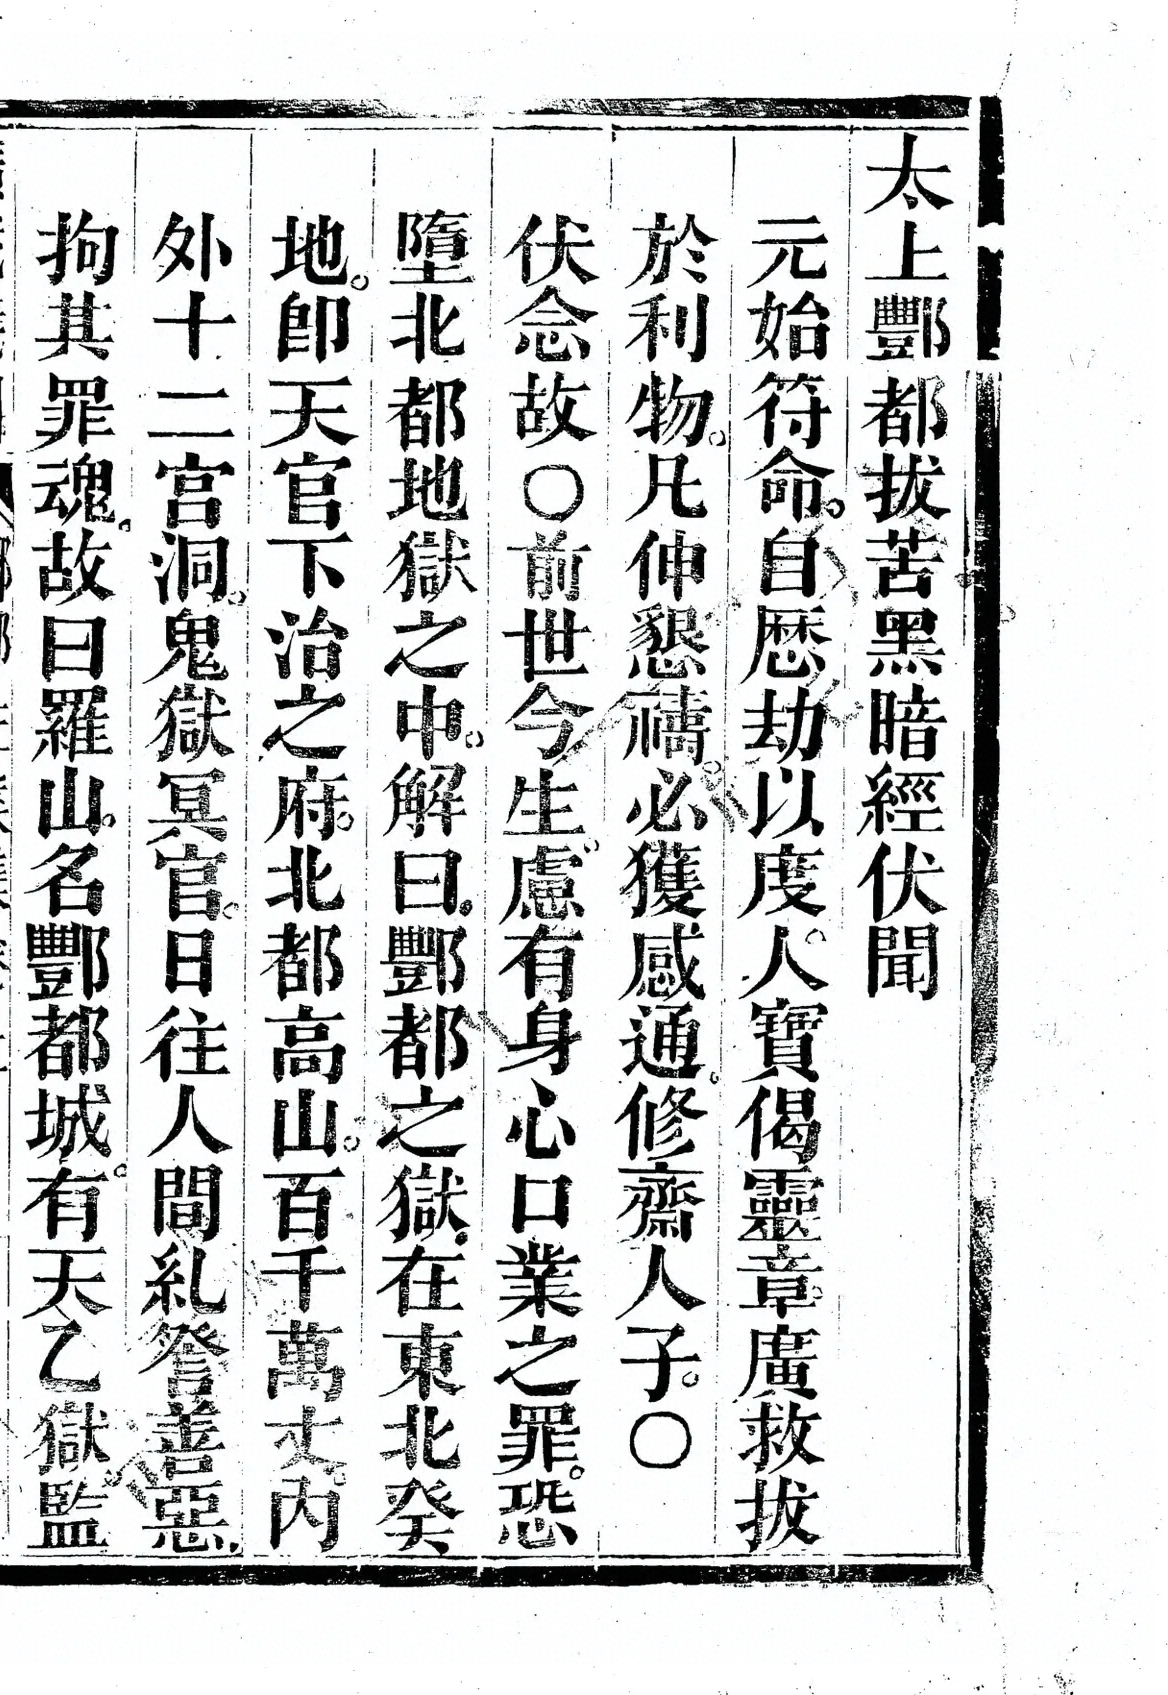 太上酆都拔苦黑暗經伏聞
元始符命。自歷劫以度人。寶偈靈章。廣救拔
於利物。凡伸懇禱。必獲感通。修齋人子。〇
伏念故〇前世今生。慮有身心口業之罪。恐
墮北都地獄之中。解曰。酆都之獄。在東北癸
地。卽天官下治之府。北都高山。百千萬丈。內
外十二宮洞。鬼獄冥官。日往人間糾詧善惡。
拘其罪魂。故曰羅山。名酆都城。有天乙獄。監